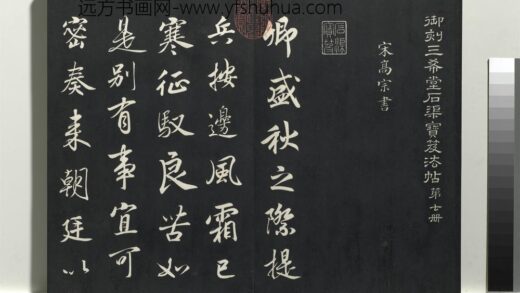 远方书画网-www.yfshuhua.com
御刻三希堂石渠寶笈法帖第七册
宋高宗書
卿盛秋之際提
兵按邊風霜已
寒征馭良苦如
是别有事宜可
密奏来朝廷以